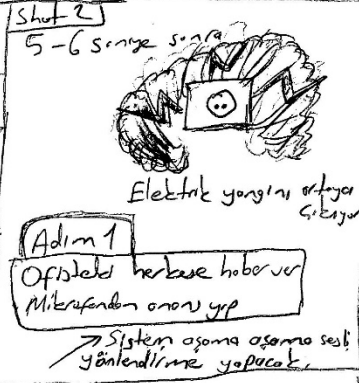 Shot-2
5-6 saniye sonra
Elektrik yangını ortaya
çıkıyor
Adım 1
Ofisteki herkese haber ver
Mikrofondan anons yap
Sistem aşama aşama sesli
yönlendirme yapacak.